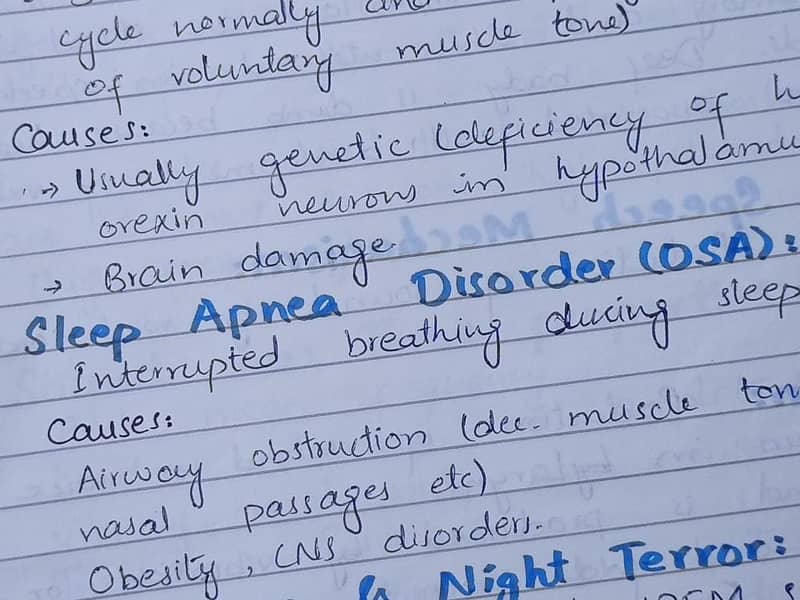 cycle normally and
of voluntary muscle tone)
Causes:
→ Usually genetic (deficiency of h
orexin neurons in hypothalamu
→ Brain damage.
Sleep Apnea Disorder (OSA):
Interrupted breathing during sleep
Causes:
Airway obstruction (dec. muscle ton
nasal passages etc)
Obesity, CNS disorders.
& Night Terror: